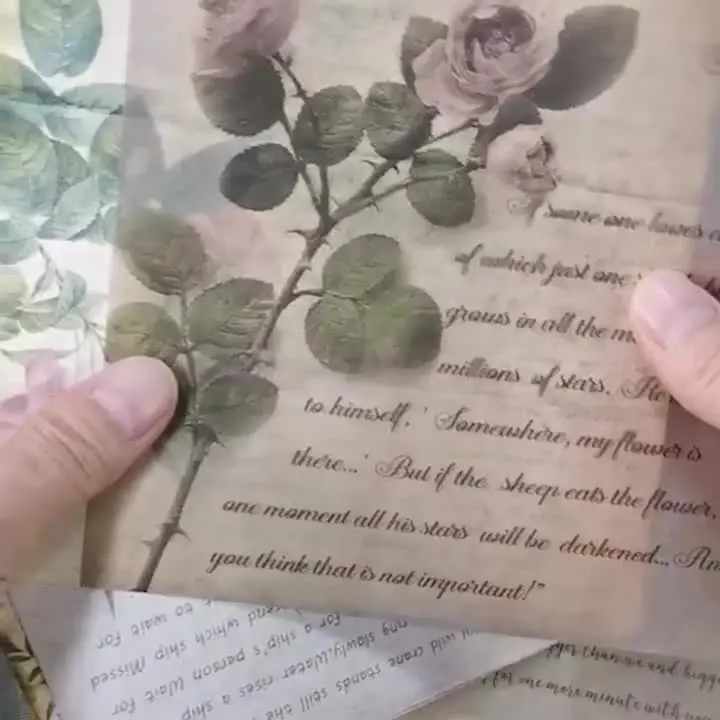 some one loves a
of which just one
grows in all the m
millions of stars. He
to himself, ' Somewhere, my flower is
there...' But if the sheep eats the flower,
one moment all his stars will be darkened... An
you think that is not important!"
to wait for
end which ship Missed
for a ship's person Wait for
ng slowly.Water rises a ship
wild crane stands still the
ger than me and bigge
for one more minute with you